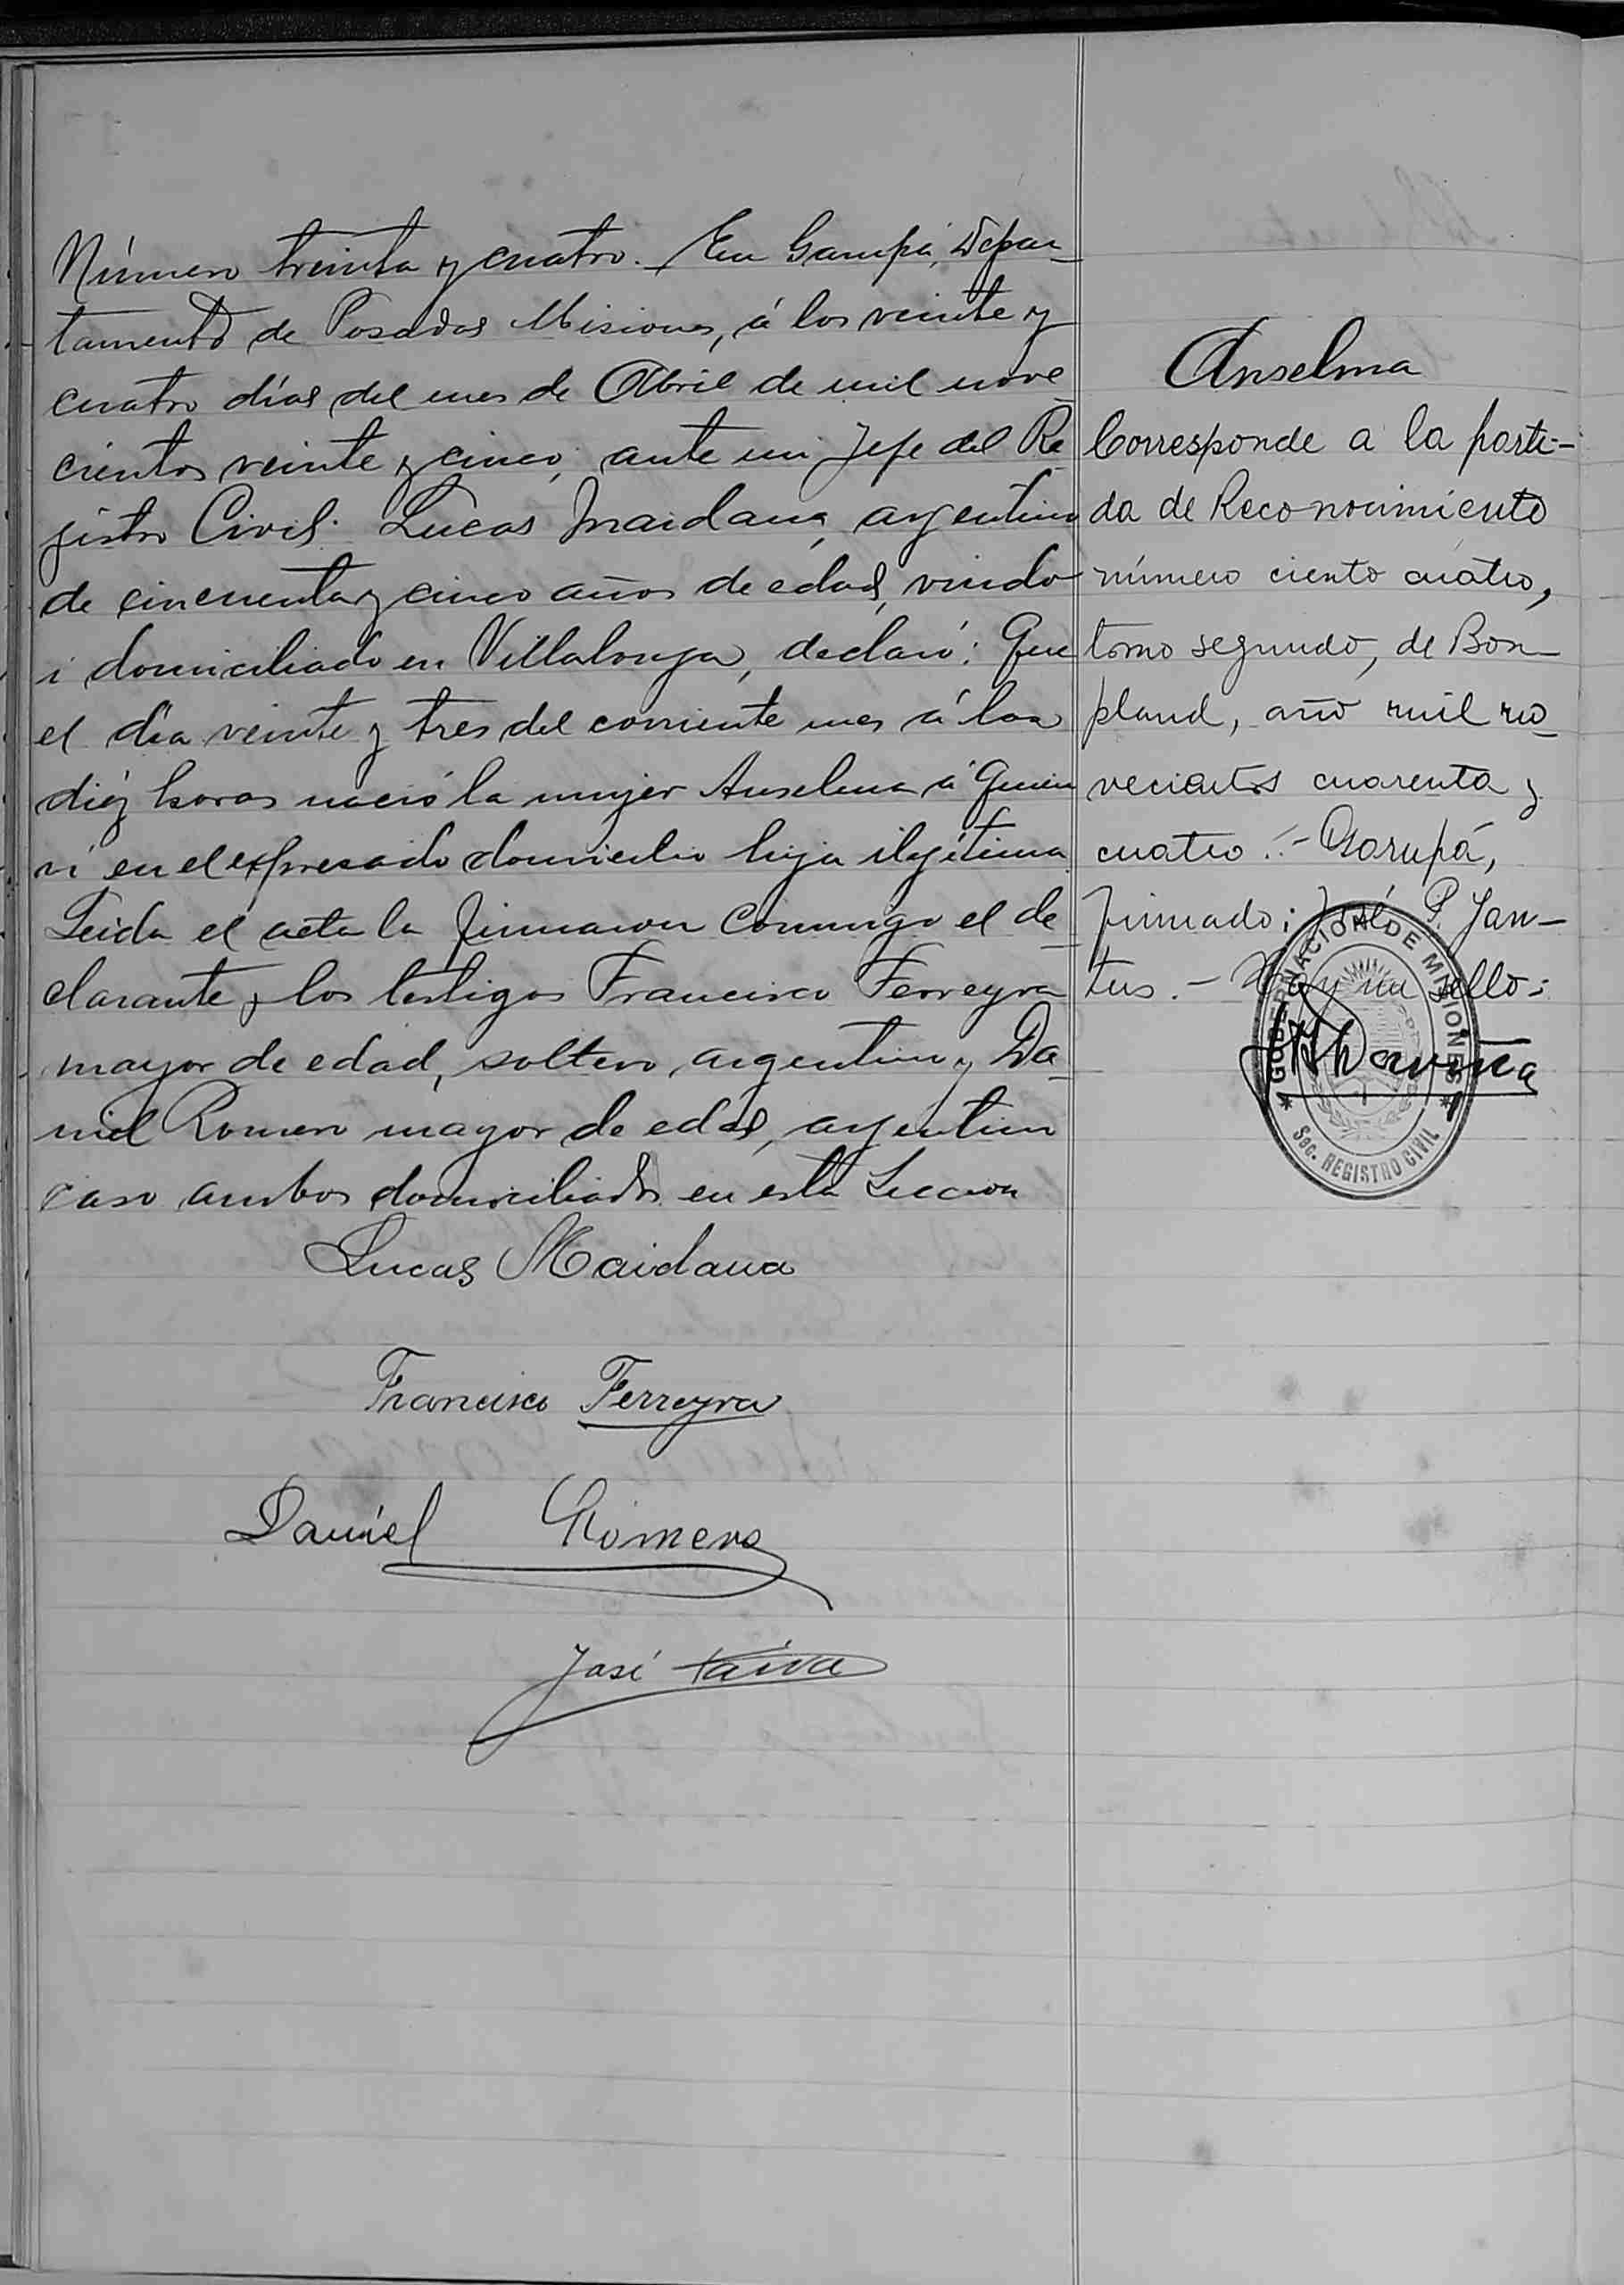 Número treinta y cuatro. En Garupá, Depar-
tamento de Posadas Misiones, á los veinte y
cuatro días del mes de Abril de mil nove
cientos veinte y cinco, ante mi Jefe del Re
jistro Civil: Lucas Maidana, argentino
de cincuenta y cinco años de edad, viudo
i domiciliado en Villalonga, declaró: Que
el día veinte y tres del corriente mes á las
diéz horas nació la mujer Anselma á Quien
ví en el expresado domicilio hija ilejítima
Leida el acta la firmaron conmigo el de
clarante y los testigos Francisco Ferreyra
mayor de edad, soltero, argentino y Da
niel Romero mayor de edad, argentino
caso ambos domiciliados en esta Seccion
Lucas Maidana
Francisco Ferreyra
Daniel Romero
José Paiva
Anselma
Corresponde a la parti-
da de Reconocimiento
número ciento cuatro,
tomo segundo, de Bon-
pland, año mil no-
vecientos cuarenta y
cuatro.- Garupá,
firmado: José P. San-
tus.- Hay un sello:
GOBERNACION DE MISIONES
Sec. REGISTRO CIVIL